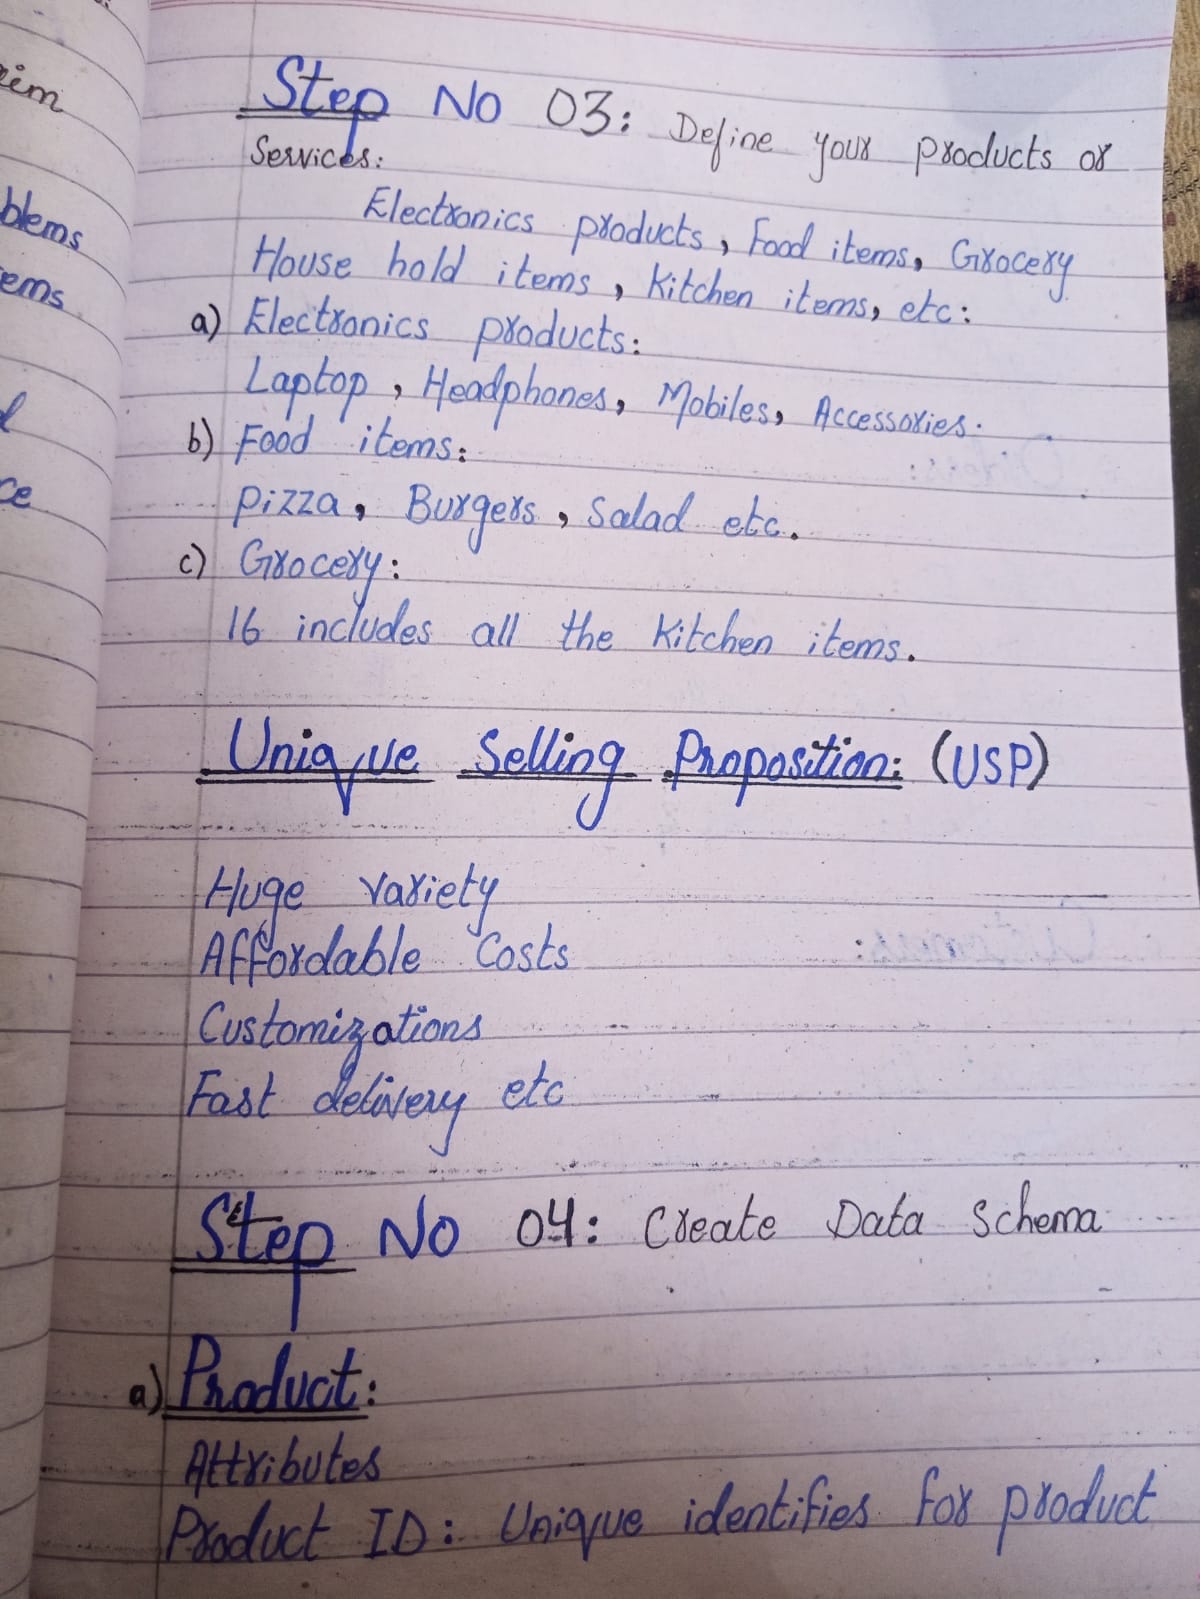 rem
blems
ems
ce
Step No 03: Define your products or
Services:
Electronics products, Food items, Grocery
House hold items, Kitchen items, etc:
a) Electronics products:
Laptop, Headphones, Mobiles, Accessories.
b) Food items:
Pizza, Burgers, Salad etc.
c) Grocery:
16 includes all the Kitchen items.
Unique Selling Proposition: (USP)
Huge variety
Affordable Costs
Customizations
Fast delivery etc
Step No 04: Create Data Schema
a) Product:
Attributes
Product ID: Unique identifies for product